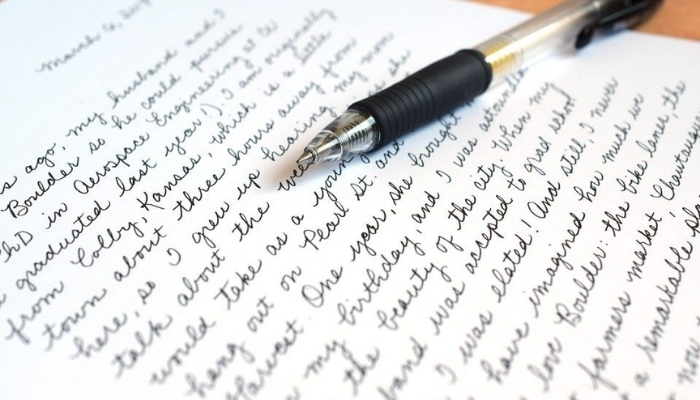 March 6,
ago, my husband and I
Boulder so he could pursue
PhD in Aerospace Engineering at CU
graduated last you!). I am originally
from Colby, Kansas, which is a little
town about three hours away from
here, so I grew up hearing my mom
talk about the she
would take as a young
hang out on Pearl St. and
One year, she brought
my birthday, and I was astounded
the beauty of the city. When my
was accepted to grad school
I was elated! And still, I never
have imagined how much we
love Boulder: the bike lanes, the
farmers market,
a remarkable
now